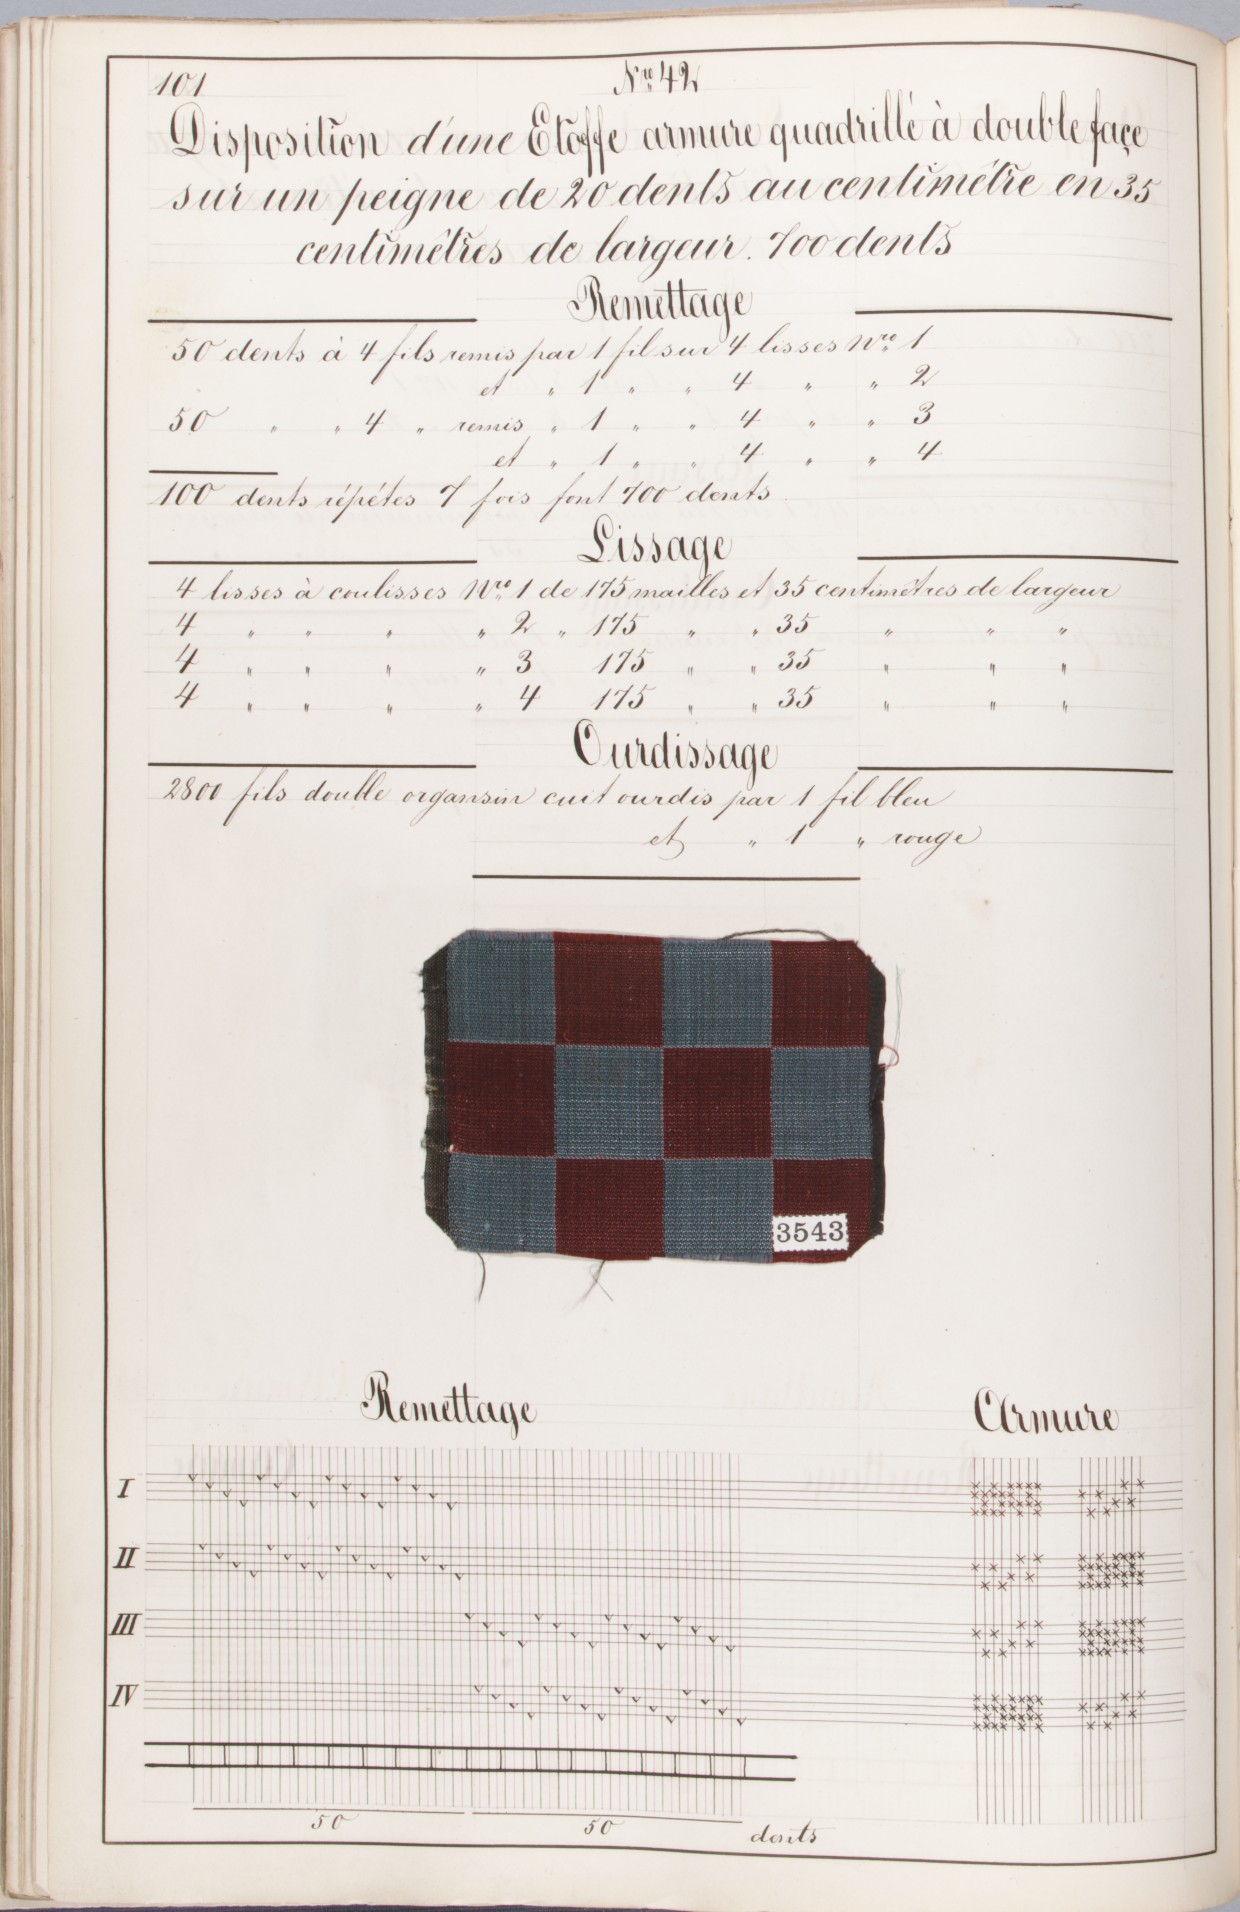 101
Nro 42
Disposition d'une Etoffe armure quadrillé à double façe
sur un peigne de 20 dents au centimétre en 35
centimétres de largeur. 700 dents
Remettage
50 dents à 4 fils remis par 1 fil sur 4 lisses Nro 1
et " 1 " " 4 " " 2
50 " " 4 " remis " 1 " " 4 " " 3
et " 1 " " 4 " " 4
100 dents répétes 7 fois font 700 dents
Lissage
4 lisses à coulisses Nro 1 de 175 mailles et 35 centimetres de largeur
4 " " " " 2 " 175 " " 35 " " "
4 " " " " 3 175 " " 35 " " "
4 " " " " 4 175 " " 35 " " "
Ourdissage
2800 fils double organsin cuit ourdis par 1 fil bleu
et " 1 " rouge
3543
Remettage
Armure
I
II
III
IV
50 50 dents